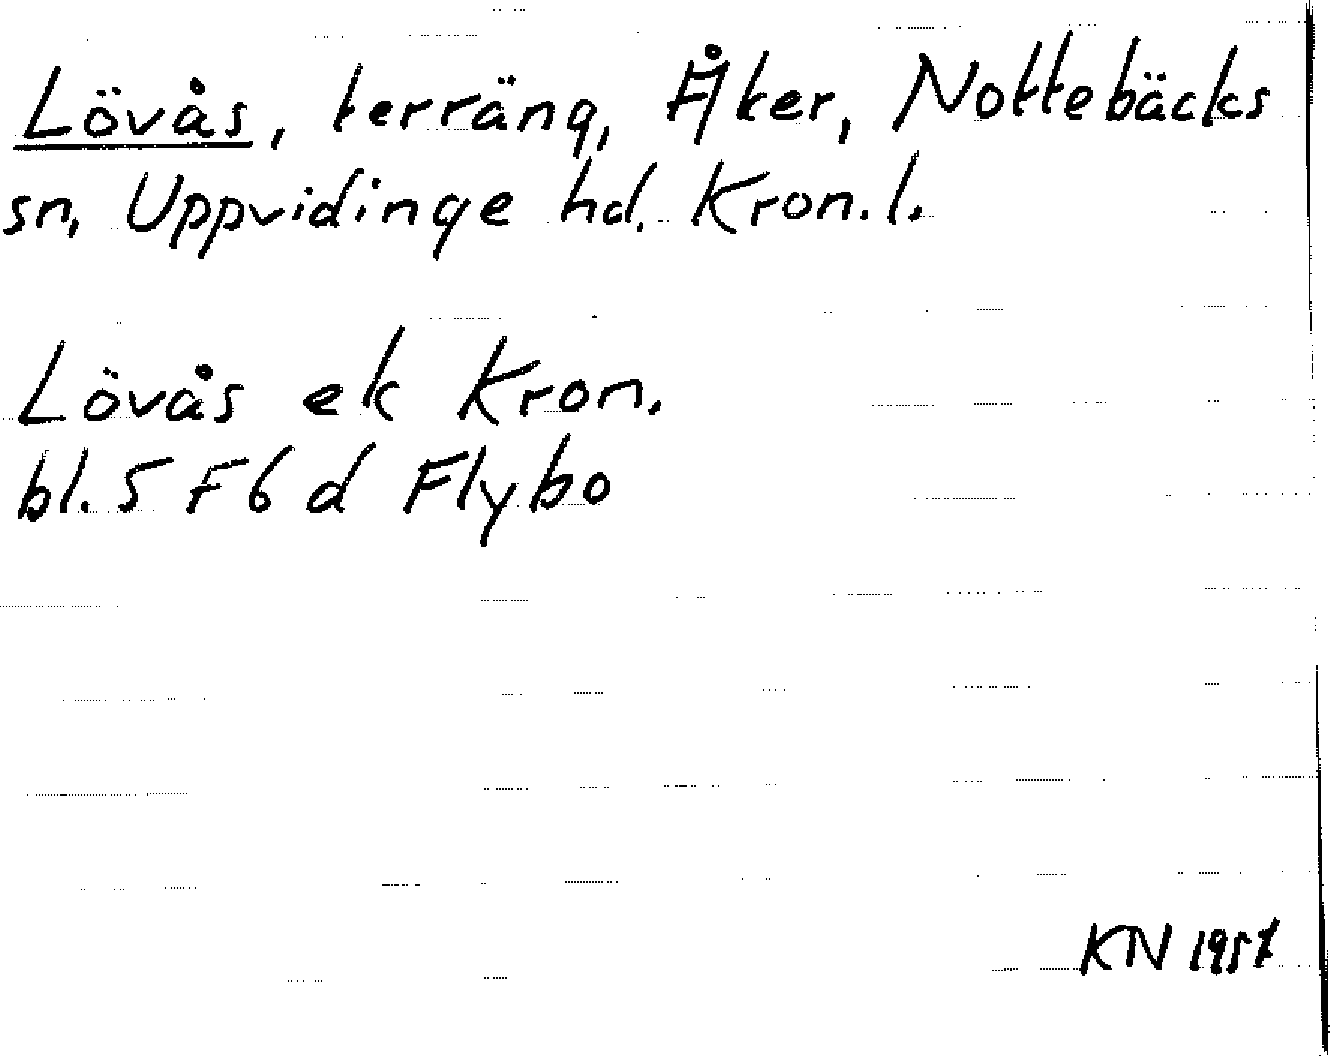 Lövås, terräng, Åker, Nottebäcks
sn, Uppvidinge hd. Kron.l.
Lövås ek Kron.
bl. 5 F 6 d Flybo
KN 1957